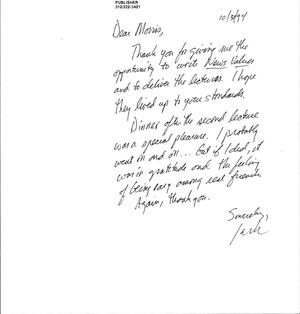 PUBLISHER
312/222-3421
10/3/94
Dear Morris,
Thank you for giving me the
opportunity to write News Values
and to deliver the lectures. I hope
they lived up to your standards.
Dinner after the second lecture
was a special pleasure. I probably
went on and on... But if I did, it
was in gratitude and the feeling
of being easy among real friends.
Again, thank you.
Sincerely,
Jack